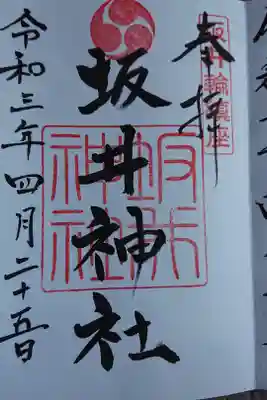 坂井輪鎮座
奉拝
坂井神社
坂井神社
令和三年四月二十五日